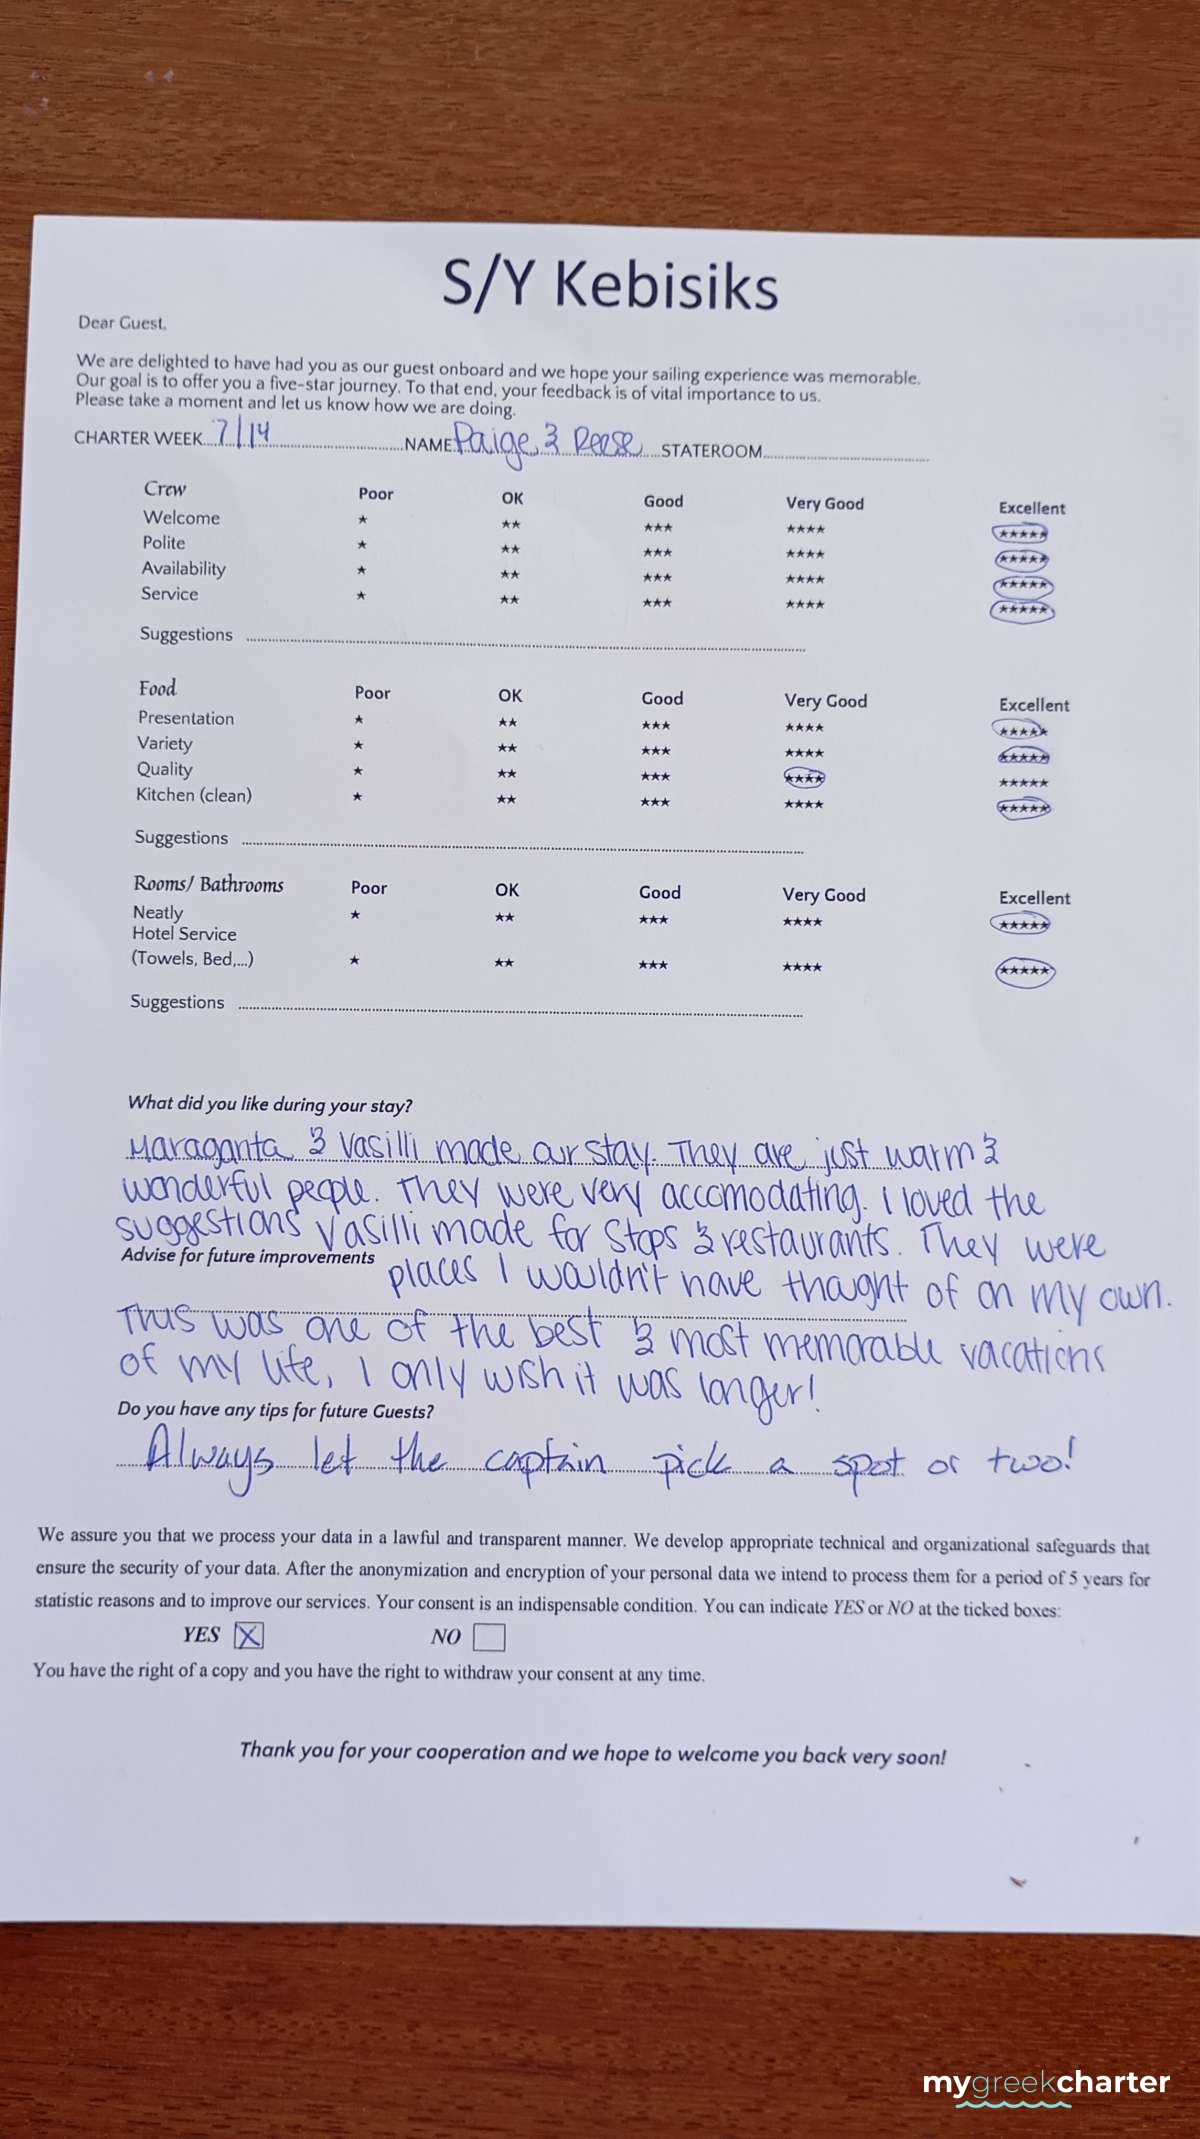 S/Y Kebisiks
Dear Guest,
We are delighted to have had you as our guest onboard and we hope your sailing experience was memorable.
Our goal is to offer you a five-star journey. To that end, your feedback is of vital importance to us.
Please take a moment and let us know how we are doing.
CHARTER WEEK 7/14 NAME Paige & Reese STATEROOM
Crew Poor OK Good Very Good Excellent
Welcome ★ ★★ ★★★ ★★★★ ★★★★★
Polite ★ ★★ ★★★ ★★★★ ★★★★★
Availability ★ ★★ ★★★ ★★★★ ★★★★★
Service ★ ★★ ★★★ ★★★★ ★★★★★
Suggestions
Food Poor OK Good Very Good Excellent
Presentation ★ ★★ ★★★ ★★★★ ★★★★★
Variety ★ ★★ ★★★ ★★★★ ★★★★★
Quality ★ ★★ ★★★ ★★★★ ★★★★★
Kitchen (clean) ★ ★★ ★★★ ★★★★ ★★★★★
Suggestions
Rooms/ Bathrooms Poor OK Good Very Good Excellent
Neatly ★ ★★ ★★★ ★★★★ ★★★★★
Hotel Service
(Towels, Bed,...) ★ ★★ ★★★ ★★★★ ★★★★★
Suggestions
What did you like during your stay?
Maraganta & Vasilli made our stay. They are just warm &
wonderful people. They were very accomodating. I loved the
suggestions Vasilli made for stops & restaurants. They were
Advise for future improvements
places I wouldn't have thought of on my own.
This was one of the best & most memorable vacations
of my life, I only wish it was longer!
Do you have any tips for future Guests?
Always let the captain pick a spot or two!
We assure you that we process your data in a lawful and transparent manner. We develop appropriate technical and organizational safeguards that
ensure the security of your data. After the anonymization and encryption of your personal data we intend to process them for a period of 5 years for
statistic reasons and to improve our services. Your consent is an indispensable condition. You can indicate YES or NO at the ticked boxes:
YES X NO
You have the right of a copy and you have the right to withdraw your consent at any time.
Thank you for your cooperation and we hope to welcome you back very soon!
mygreekcharter